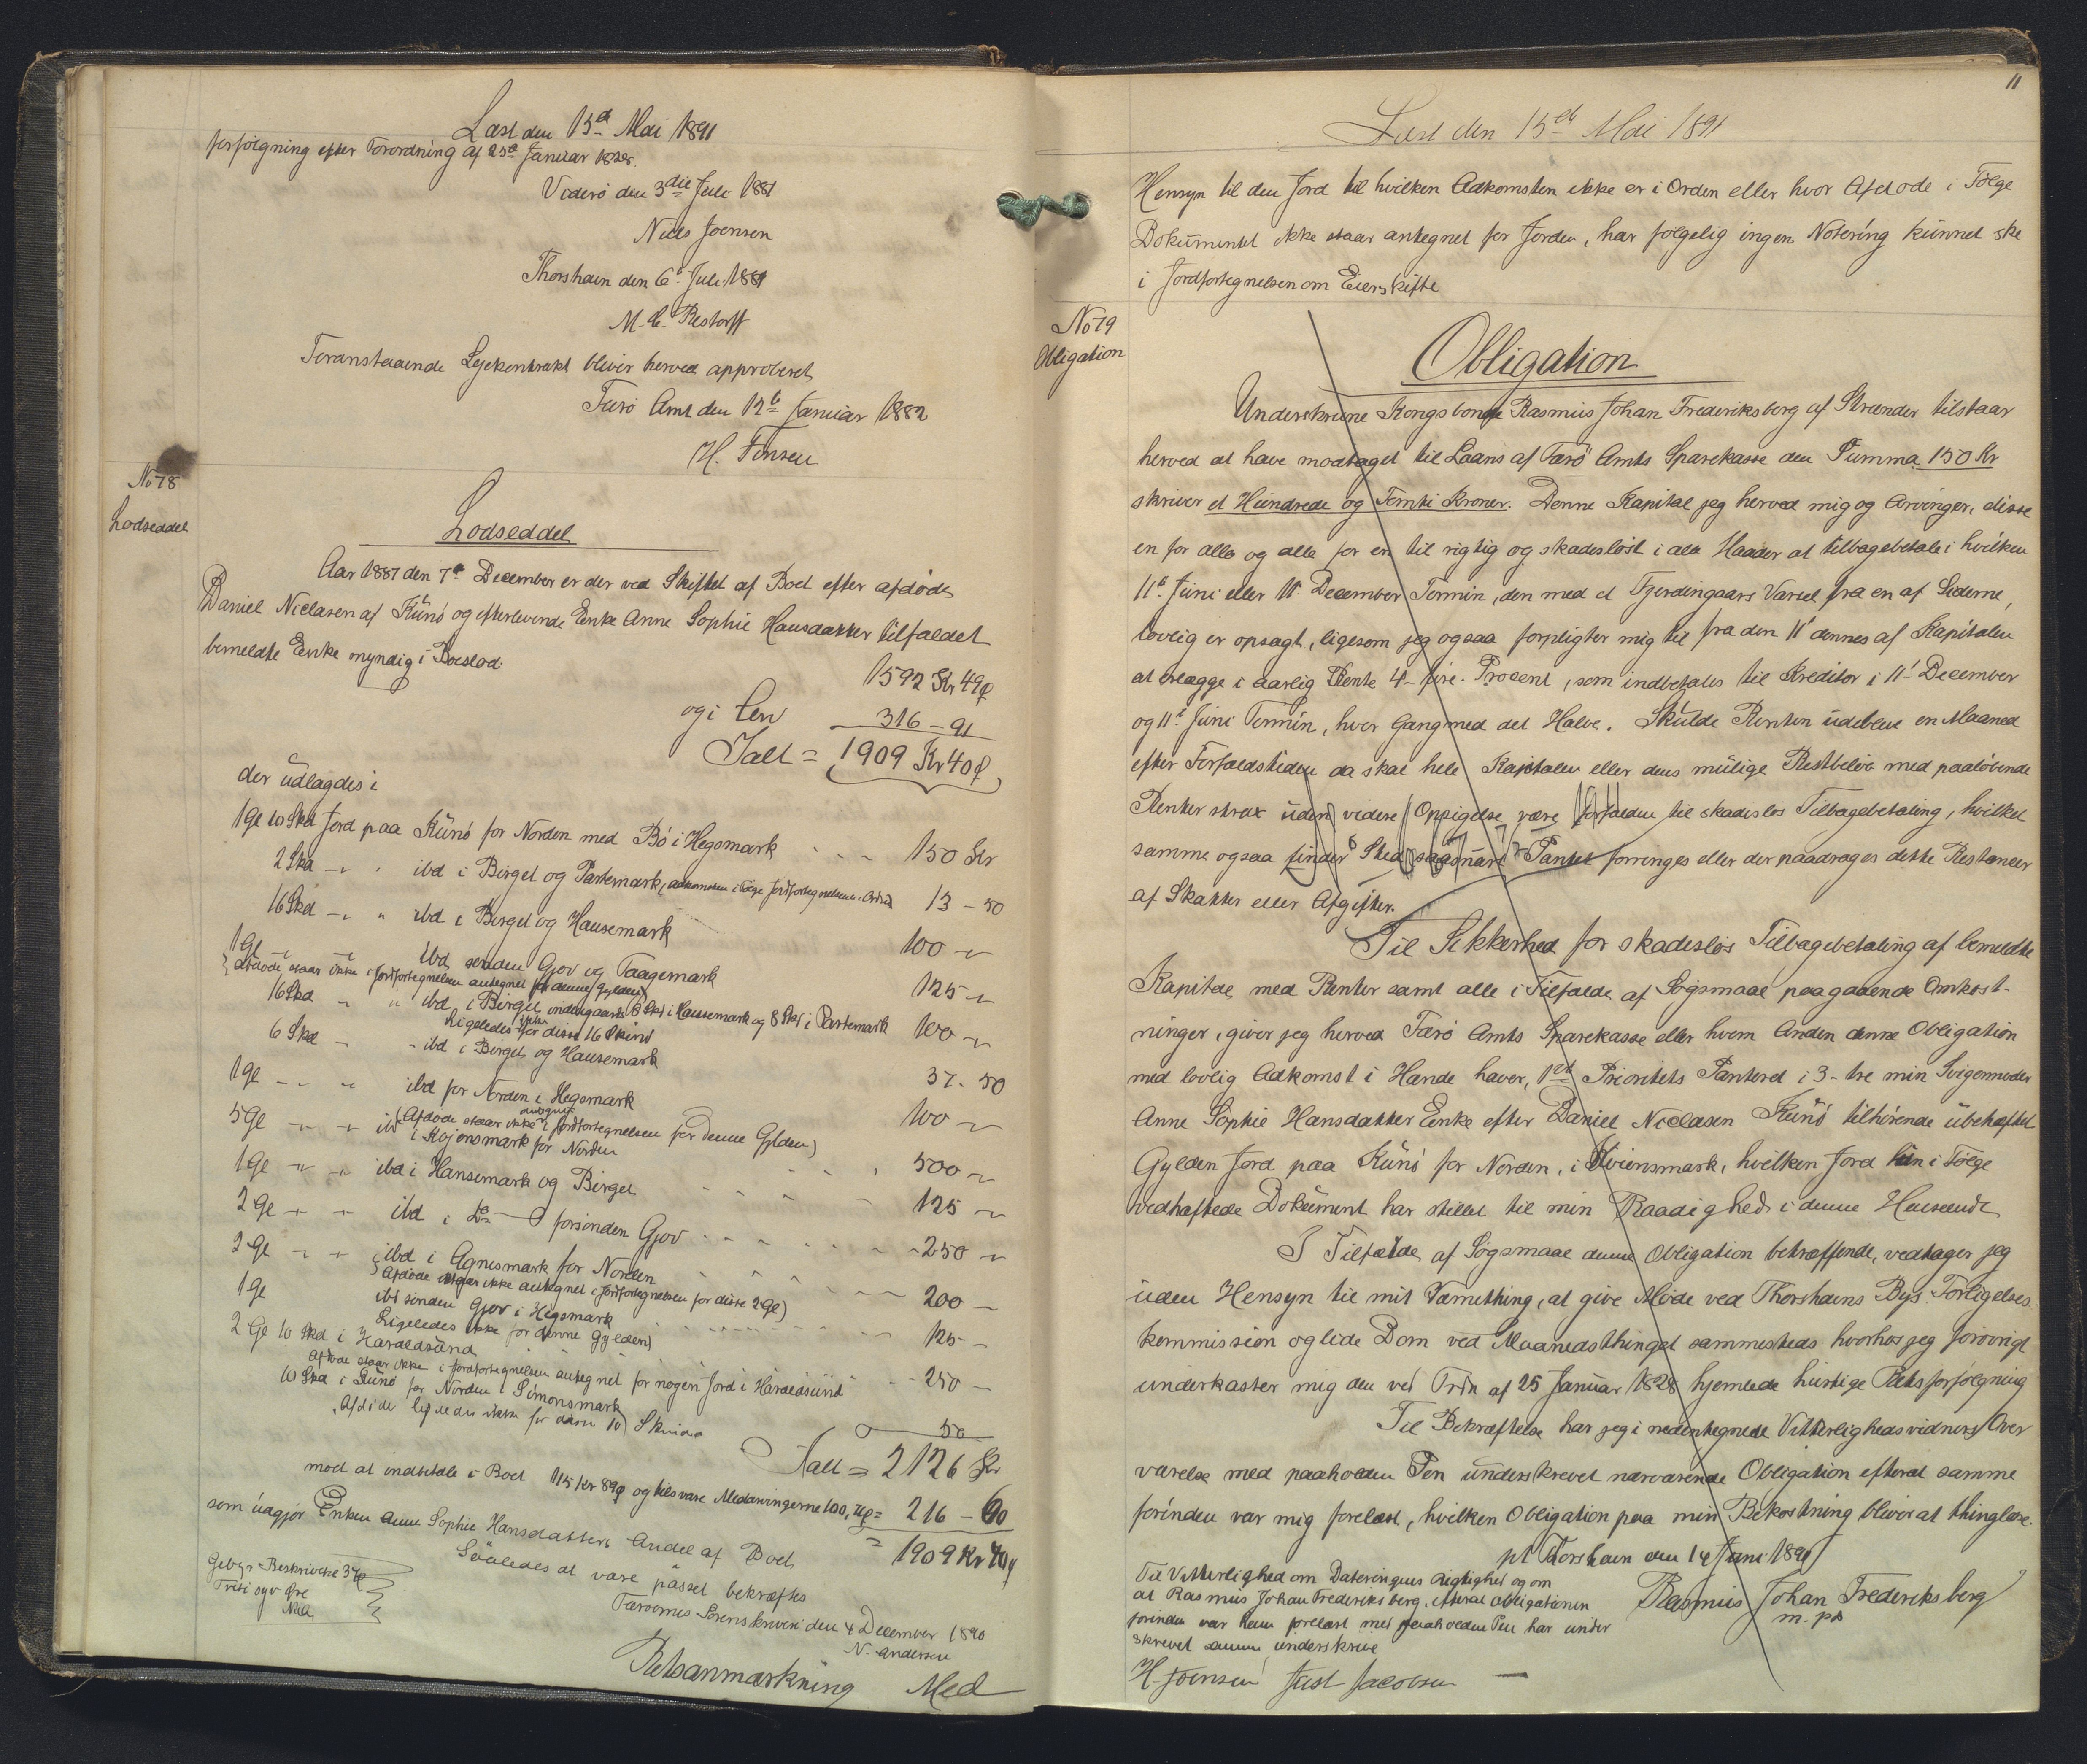 Læst den 15d Mai 1891
forfølgning efter Forordning af 25d Januar 1828.
Viderø den 3die Juli 1881
Niels Joensen
Thorshavn den 6t Juli 1881
M. C. Restorff
Foranstaaende Lejekontrakt bliver herved approberet
Færø Amt den 12t Januar 1882
H. Finsen
No 78
Lodseddel
Lodseddel
Aar 1887 den 7de December er der ved Skiftet af Boet efter afdøde
Daniel Niclasen af Kunø og efterlevende Enke Anne Sophie Hansdatter tilfaldet
bemeldte Enke myndig i Boeslod
1592 Kr 49 ø
og i Arv 316 - 91
Ialt = 1909 Kr 40 ø
der udlagdes i
1 Gl 10 Skd Jord paa Kunø for Norden med Bø i Hegsmark 150 Kr
2 Skd - " ibd i Birgel og Partemark (adkomsten i Følge Jordfortegnelsen i Orden 13 - 50
16 Skd - " ibd i Birgel og Hansemark 100 -
1 Gl - - ibd sønden Gjov og Taagemark 125 -
(Afdøde staar ikke i Jordfortegnelsen antegnet for denne Gylden)
16 Skd " " ibd i Birgel undergaard 8 Skd i Hansemark og 8 Skd i Partemark 100 -
Ligeledes ikke for disse 16 Skind
6 Skd - - ibd i Birgel og Hansemark 37 - 50
1 Gl - " ibd for Norden i Hegsmark 100 -
(Afdøde staar ikke antegnet i Jordfortegnelsen for denne Gylden)
5 Gl - - ibd i Kojensmark for Norden 500 -
1 Gl - - ibd i Hansemark og Birgel 125 -
2 Gl - - ibd i Do forsønden Gjov 250 -
2 Gl - - ibd i Agnesmark for Norden 200 -
(Afdøde staar ikke antegnet i Jordfortegnelsen for disse 2 Gl)
1 Gl ibd sønden Gjov i Hegsmark 125 -
Ligeledes ikke for denne Gylden)
2 Gl 10 Skd i Haraldsund 250 -
Afdøde staar ikke i Jordfortegnelsen antegnet for nogen Jord i Haraldsund
10 Skd i Kunø for Norden i Simonsmark 50
Afdøde ligeledes ikke for disse 10 Skind
Ialt = 2126 Kr
mod at indbetale i Boet 115 Kr 89 ø og tilsvare Medarvingerne 100, 71 ø = 216 - 60
som udgjør Enken Anne Sophie Hansdatters Andel af Boet = 1909 Kr 40 ø
Saaledes at være passet bekræftes
Færøernes Sorenskriveri den 4 December 1890
N. Andersen
Gebyr Beskrivelse 37 ø
Treti syv Øre
NA
Retsanmærkning Med
11
Læst den 15d Mai 1891
Hensyn til den Jord til hvilken Adkomsten ikke er i Orden eller hvor Afdøde i Følge
Dokumentet ikke staar antegnet for Jorden, har følgelig ingen Notering kunnet ske
i Jordfortegnelsen om Eierskifte
No 79
Obligation
Obligation
Underskrevne Kongsbonde Rasmus Johan Frederiksberg af Strænder tilstaar
herved at have modtaget til Laans af Færø Amts Sparekasse den Summa 150 Kr
skriver et Hundrede og Femti Kroner. Denne Kapital jeg herved mig og Arvinger, disse
en for alle og alle for en til rigtig og skadesløst i alle Maader at tilbagebetale i hvilken
11t Juni eller 11t December Termin, den med et Fjerdingaars Varsel fra en af Siderne,
lovlig er opsagt, ligesom jeg ogsaa forpligter mig til fra den 11t dennes af Kapitalen
at erlægge i aarlig Rente 4- fire - Procent, som indbetales til Kreditor i 11t December
og 11t Juni Termin, hver Gang med det Halve. Skulde Renten udeblive en Maaned
efter Forfaldstiden da skal hele Kapitalen eller dens mulige Restbeløb med paaløbende
Renter strax uden videre Opsigelse være forfalden til skadesløs Tilbagebetaling, hvilket
samme ogsaa finder Sted saasnart Pantet forringes eller der paadrages dette Restancer
af Skatter eller Afgifter.
Til Sikkerhed for skadesløs Tilbagebetaling af bemeldte
Kapital med Renter samt alle i Tilfælde af Søgsmaal paagaaende Omkost-
ninger, giver jeg herved Færø Amts Sparekasse eller hvem Anden denne Obligation
med lovlig Adkomst i Hænde haver, 1ste Prioritets Panteret i 3- tre min Svigermoder
Anne Sophie Hansdatter Enke efter Daniel Niclasen Kunø tilhørende ubehæftet
Gylden Jord paa Kunø for Norden, i Kviensmark, hvilken Jord hun i Følge
vedhæftede Dokument har stillet til min Raadighed i denne Henseende
I Tilfælde af Søgsmaal denne Obligation betræffende, vedtager jeg
uden Hensyn til mit Værnething, at give Møde ved Thorshavns Bys Forligelses
kommission og lide Dom ved Maanedsthinget sammesteds hvorhos jeg forøvrigt
underkaster mig den ved Frdn af 25 Januar 1828 hjemlede hurtige Retsforfølgning
Til Bekræftelse har jeg i nedentegnede Vitterlighedsvidners Over
værelse med paaholden Pen underskrevet nærværende Obligation efterat samme
forinden var mig forelæst, hvilken Obligation paa min Bekostning bliver at thinglæse.
pt Thorshavn den 14 Juni 1890
Til Vitterlighed om Dateringens Rigtighed og om
at Rasmus Johan Frederiksberg, efterat Obligationen
forinden var ham forelæst med paaholden Pen har under
skrevet samme underskrive
Rasmus Johan Frederiksberg
m. p. P
H. Joensen Just Jacobsen